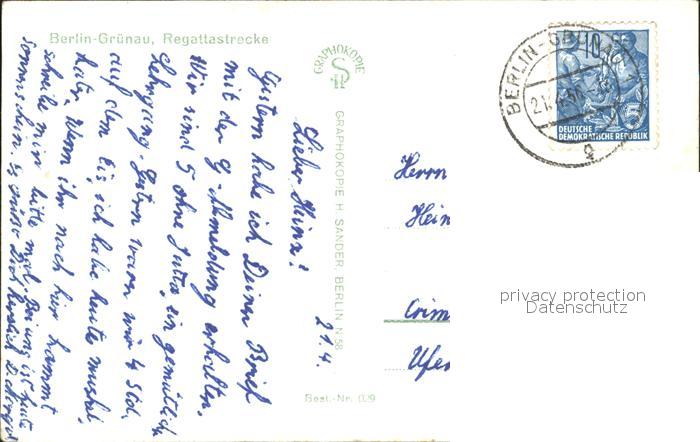 Berlin-Grünau, Regattastrecke
GRAPHOKOPIE
GRAPHOKOPIE H. SANDER, BERLIN N 58
Best.-Nr. 029
BERLIN-GRÜNAU
10
5
DEUTSCHE
DEMOKRATISCHE REPUBLIK
g
21.4.
Lieber Heinz!
Gestern habe ich Deinen Brief
mit der Anmeldung erhalten.
Wir sind 5 ohne Jutta, ein gemütlich
Lehrgang. Gestern waren wir 4 Std.
auf dem Eis, ich habe heute Muskel
kater. Wenn ihr nach hier kommt
schreibe mir bitte mal. Bei uns ist heute
sonnenschein. Es grüßt Dich herzlich
Herrn
Hein
Crim
Ufer
privacy protection
Datenschutz